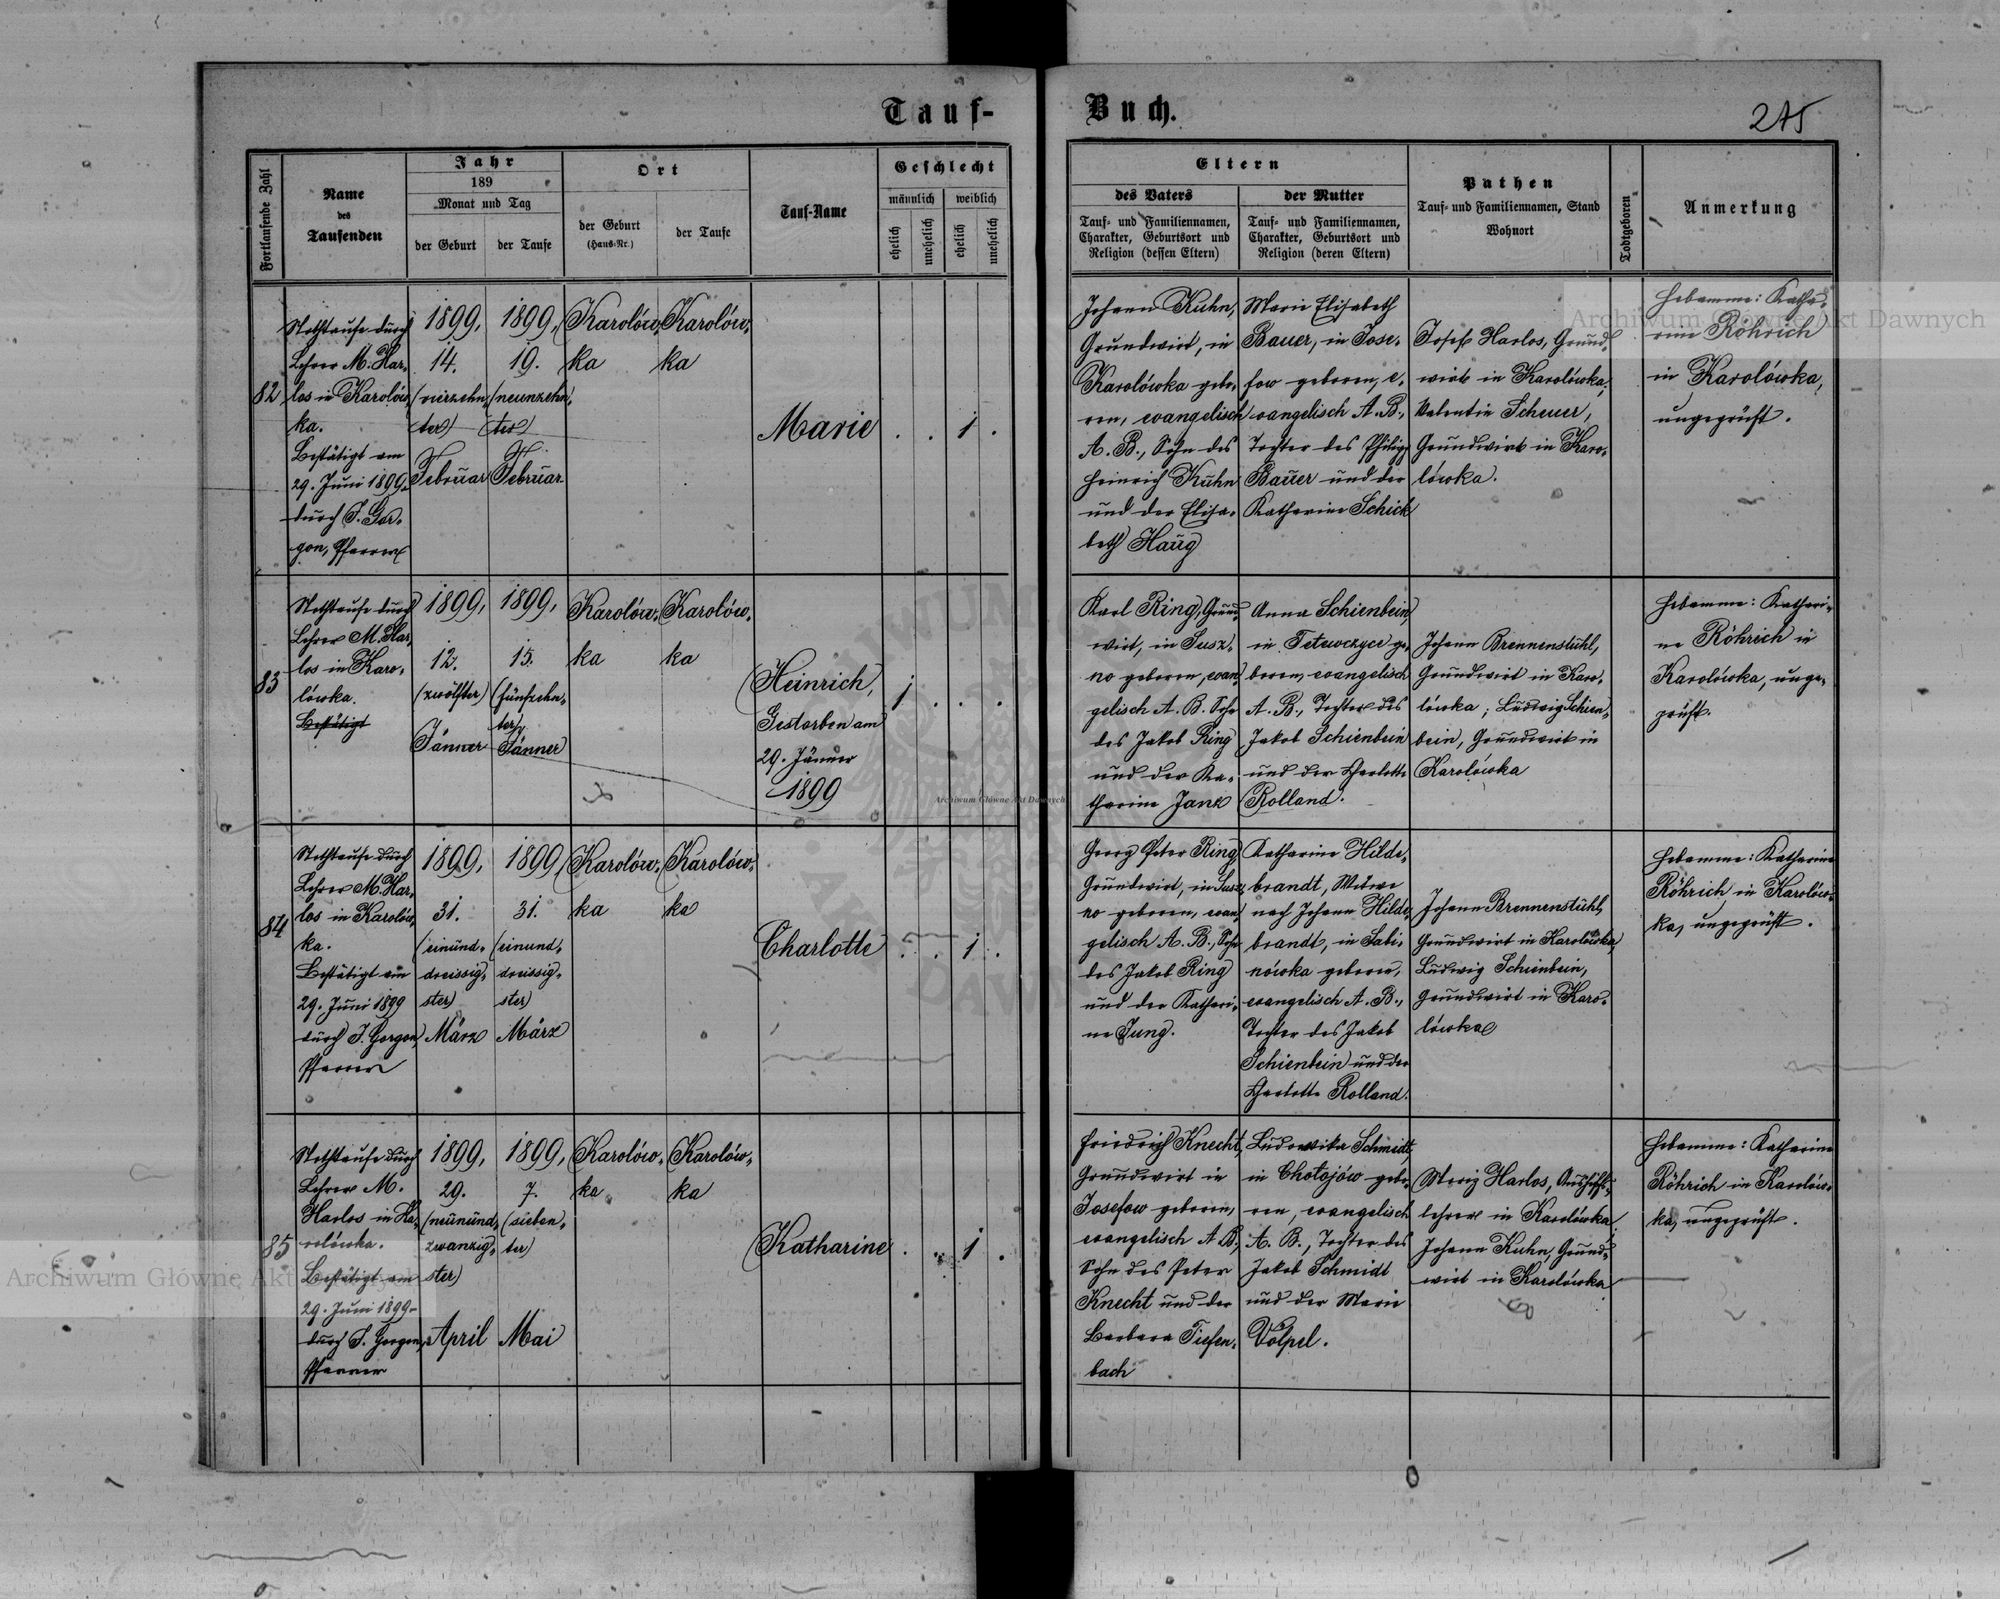 Tauf-
Buch.
275
Fortlaufende Zahl
Name
des
Taufenden
Jahr
189
Monat und Tag
der Geburt
der Taufe
Ort
der Geburt
(Haus-Nr.)
der Taufe
Tauf-Name
Geschlecht
männlich
weiblich
ehelich
unehelich
ehelich
unehelich
Eltern
des Vaters
Tauf- und Familiennamen,
Charakter, Geburtsort und
Religion (dessen Eltern)
der Mutter
Tauf- und Familiennamen,
Charakter, Geburtsort und
Religion (deren Eltern)
Pathen
Tauf- und Familiennamen, Stand
Wohnort
Todtgeboren
Anmerkung
82
Nothtaufe durch
Lehrer M. Har-
los in Karolów-
ka.
Bestätigt am
29. Juni 1899
durch J. Gor-
gon, Pfarrer
1899,
14.
(vierzehn-
ter)
Februar
1899,
19.
(neunzehn-
ter)
Februar
Karolów-
ka
Karolów-
ka
Marie
. . 1 .
Johann Kuhn,
Grundwirt, in
Karolówka gebo-
ren, evangelisch
A. B., Sohn des
Heinrich Kuhn
und der Elisa-
beth Haug
Marie Elisabeth
Bauer, in Jose-
fow geboren, e-
vangelisch A. B.,
Tochter des Philipp
Bauer und der
Katharine Schick
Josef Harlos, Grund-
wirt in Karolówka,
Valentin Scheuer,
Grundwirt in Karo-
lówka.
Hebamme: Katha-
rine Röhrich
in Karolówka,
ungeprüft.
83
Nothtaufe durch
Lehrer M. Har-
los in Karo-
lówka.
Bestätigt
1899,
12.
(zwölfter)
Jänner
1899,
15.
(fünfzehn-
ter)
Jänner
Karolów-
ka
Karolów-
ka
Heinrich,
Gestorben am
29. Jänner
1899
1 . . .
Karl Ring, Grund-
wirt, in Susz-
no geboren, evan-
gelisch A. B. Sohn
des Jakob Ring
und der Ka-
tharine Janz
Anna Schienbein,
in Tetewczyce ge-
boren, evangelisch
A. B., Tochter des
Jakob Schienbein
und der Charlotte
Rolland.
Johann Brennenstuhl,
Grundwirt in Karo-
lówka; Ludwig Schien-
bein, Grundwirt in
Karolówka
Hebamme: Kathari-
ne Röhrich in
Karolówka, unge-
prüft.
84
Nothtaufe durch
Lehrer M. Har-
los in Karolów-
ka.
Bestätigt am
29. Juni 1899
durch J. Gorgon,
Pfarrer
1899,
31.
(einund-
dreissig-
ster)
März
1899,
31.
(einund-
dreissig-
ster)
März
Karolów-
ka
Karolów-
ka
Charlotte
. . 1 .
Georg Peter Ring,
Grundwirt, in Susz-
no geboren, evan-
gelisch A. B., Sohn
des Jakob Ring
und der Kathari-
ne Jung.
Katharine Hilde-
brandt, Witwe
nach Johann Hilde-
brandt, in Sabi-
nówka geboren,
evangelisch A. B.,
Tochter des Jakob
Schienbein und der
Charlotte Rolland.
Johann Brennenstuhl,
Grundwirt in Karolówka,
Ludwig Schienbein,
Grundwirt in Karo-
lówka
Hebamme: Katharine
Röhrich in Karolów-
ka, ungeprüft.
85
Nothtaufe durch
Lehrer M.
Harlos in Ka-
rolówka.
Bestätigt am
29. Juni 1899
durch J. Gorgon,
Pfarrer
1899,
29.
(neunund-
zwanzig-
ster)
April
1899,
7.
(sieben-
ter)
Mai
Karolów-
ka
Karolów-
ka
Katharine
. . 1 .
Friedrich Knecht,
Grundwirt in
Josefow geboren,
evangelisch A B.,
Sohn des Peter
Knecht und der
Barbara Tiefen-
bach
Ludowika Schmidt,
in Chotojów gebo-
ren, evangelisch
A. B., Tochter des
Jakob Schmidt
und der Marie
Völpel.
Moriz Harlos, Aushilfs-
lehrer in Karolówka,
Johann Kuhn, Grund-
wirt in Karolówka
Hebamme: Katharine
Röhrich in Karolów-
ka, ungeprüft.
Archiwum Główne Akt Dawnych
Archiwum Główne Akt Dawnych
Archiwum Główne Akt